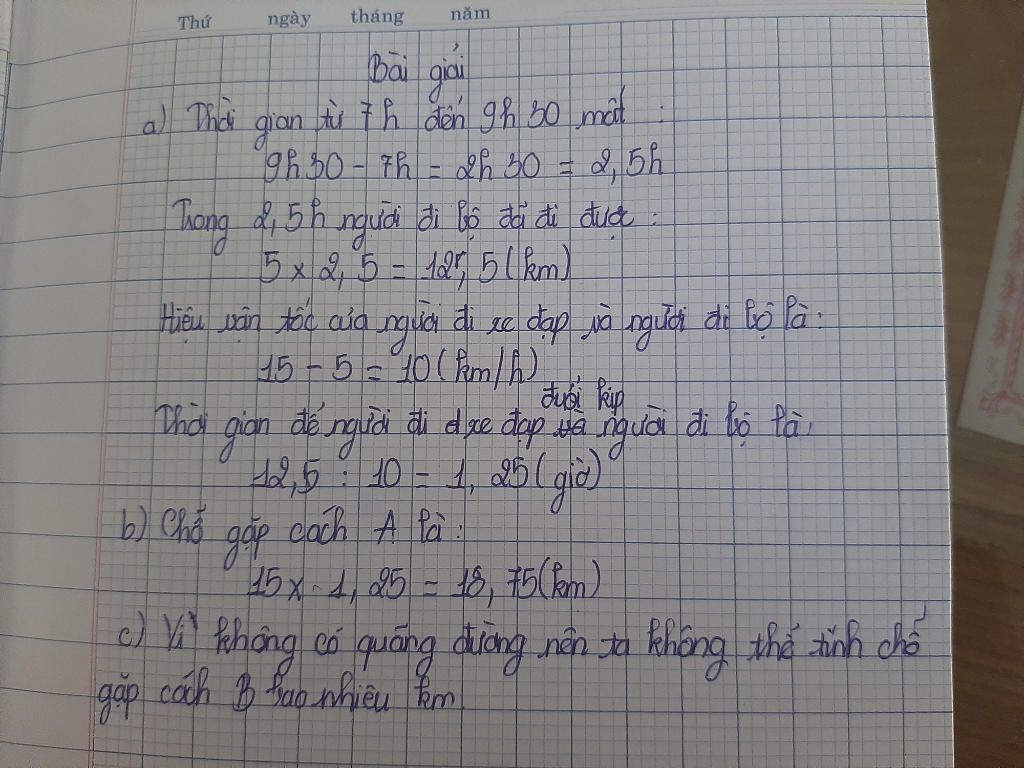 Thứ ngày tháng năm
Bài giải
a) Thời gian từ 7h đến 9h 30 mất :
9h 30 - 7h = 2h 30 = 2,5h
Trong 2,5h người đi bộ đã đi được :
5 x 2,5 = 12,5 (km)
Hiệu vận tốc của người đi xe đạp và người đi bộ là :
15 - 5 = 10 (km/h)
đuổi kịp
Thời gian để người đi xe đạp người đi bộ là :
12,5 : 10 = 1,25 (giờ)
b) Chỗ gặp cách A là :
15 x 1,25 = 18,75 (km)
c) Vì không có quãng đường nên ta không thể tính chỗ
gặp cách B bao nhiêu km